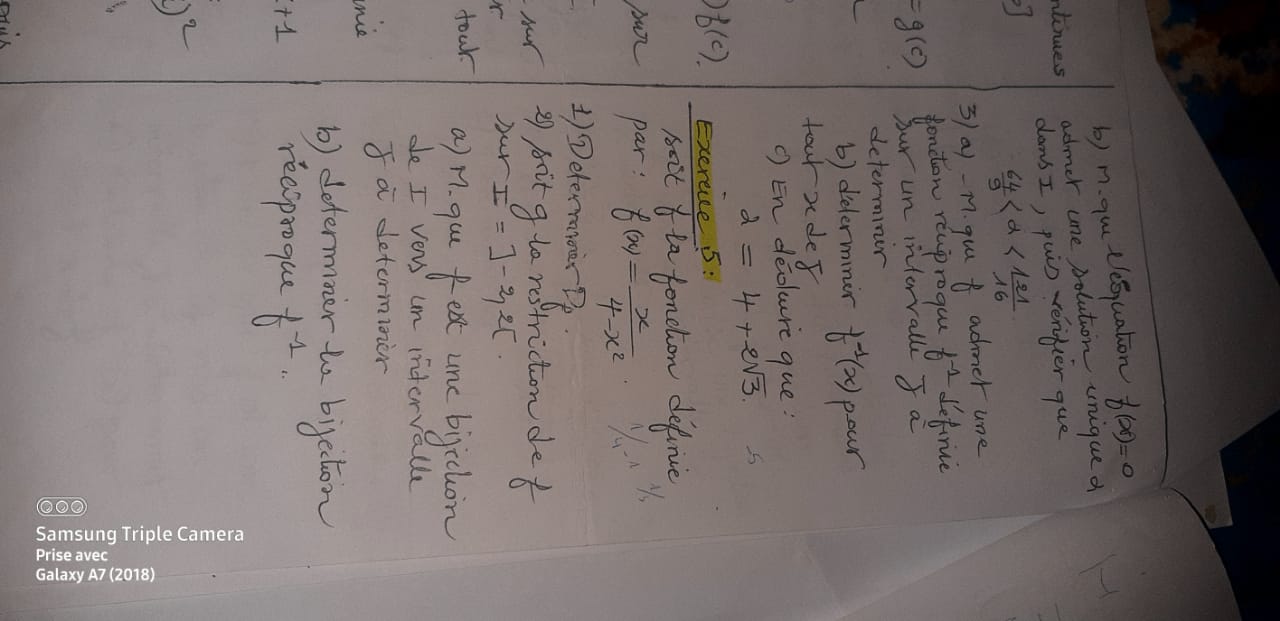 ntinues
= g(c)
) f(c).
sur
- sur
tout
i+1
b) M. que l'équation f(x)=0
admet une solution unique α
dans I, puis vérifier que
64/9 < α < 121/16
3) a) - M. que f admet une
fonction réciproque f⁻¹ définie
sur un intervalle J à
determiner
b) determiner f⁻¹(x) pour
tout x de J
c) En déduire que :
α = 4 + 2√3.
Exercice 5:
soit f la fonction définie
par : f(x) = x/(4-x²).
1) Determiner Df.
2) soit g la restriction de f
sur I = ]-2,2[.
a) M. que f est une bijection
de I vers un intervalle
J à determiner
b) determiner la bijection
réciproque f⁻¹..
Samsung Triple Camera
Prise avec
Galaxy A7 (2018)